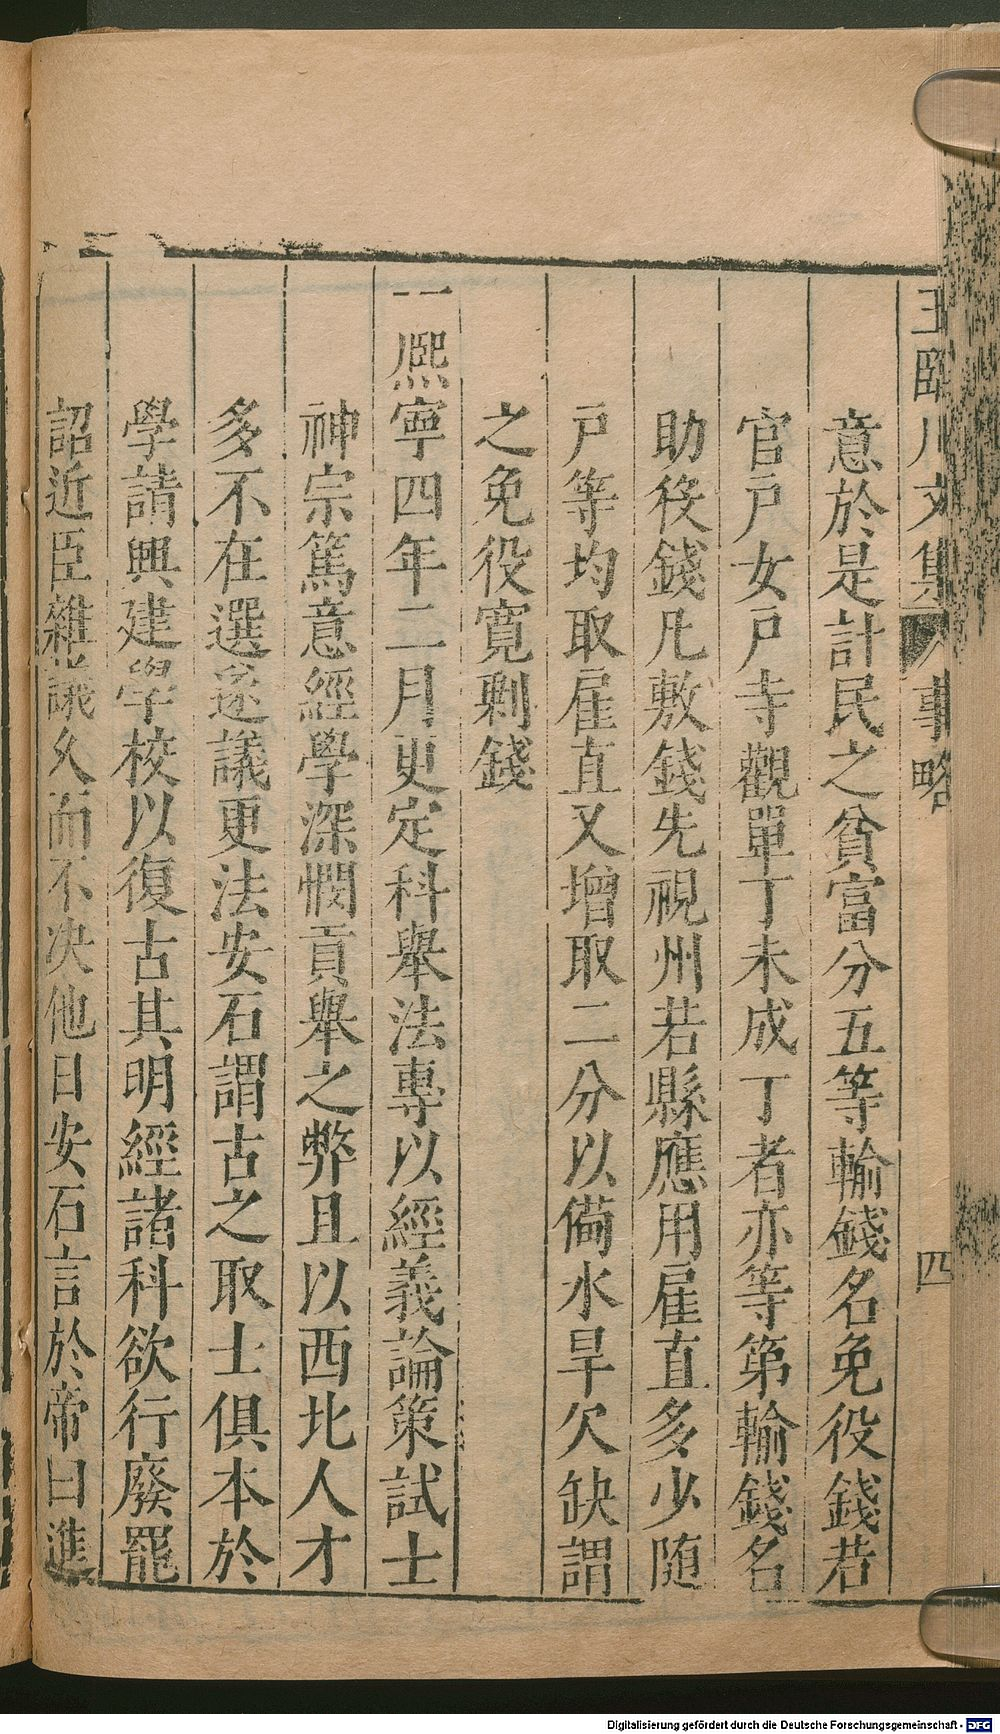 王臨川文集 事略 四
意於是計民之貧富分五等輸錢名免役錢若
官戶女戶寺觀單丁未成丁者亦等第輸錢名
助役錢凡敷錢先視州若縣應用雇直多少随
戶等均取雇直又增取二分以備水旱欠缺謂
之免役寬剩錢
一熈寧四年二月更定科舉法專以經義論策試士
神宗篤意經學深憫貢舉之弊且以西北人才
多不在選遂議更法安石謂古之取士俱本於
學請興建學校以復古其明經諸科欲行廢罷
詔近臣雜議久而不决他日安石言於帝曰進
Digitalisierung gefördert durch die Deutsche Forschungsgemeinschaft - DFG